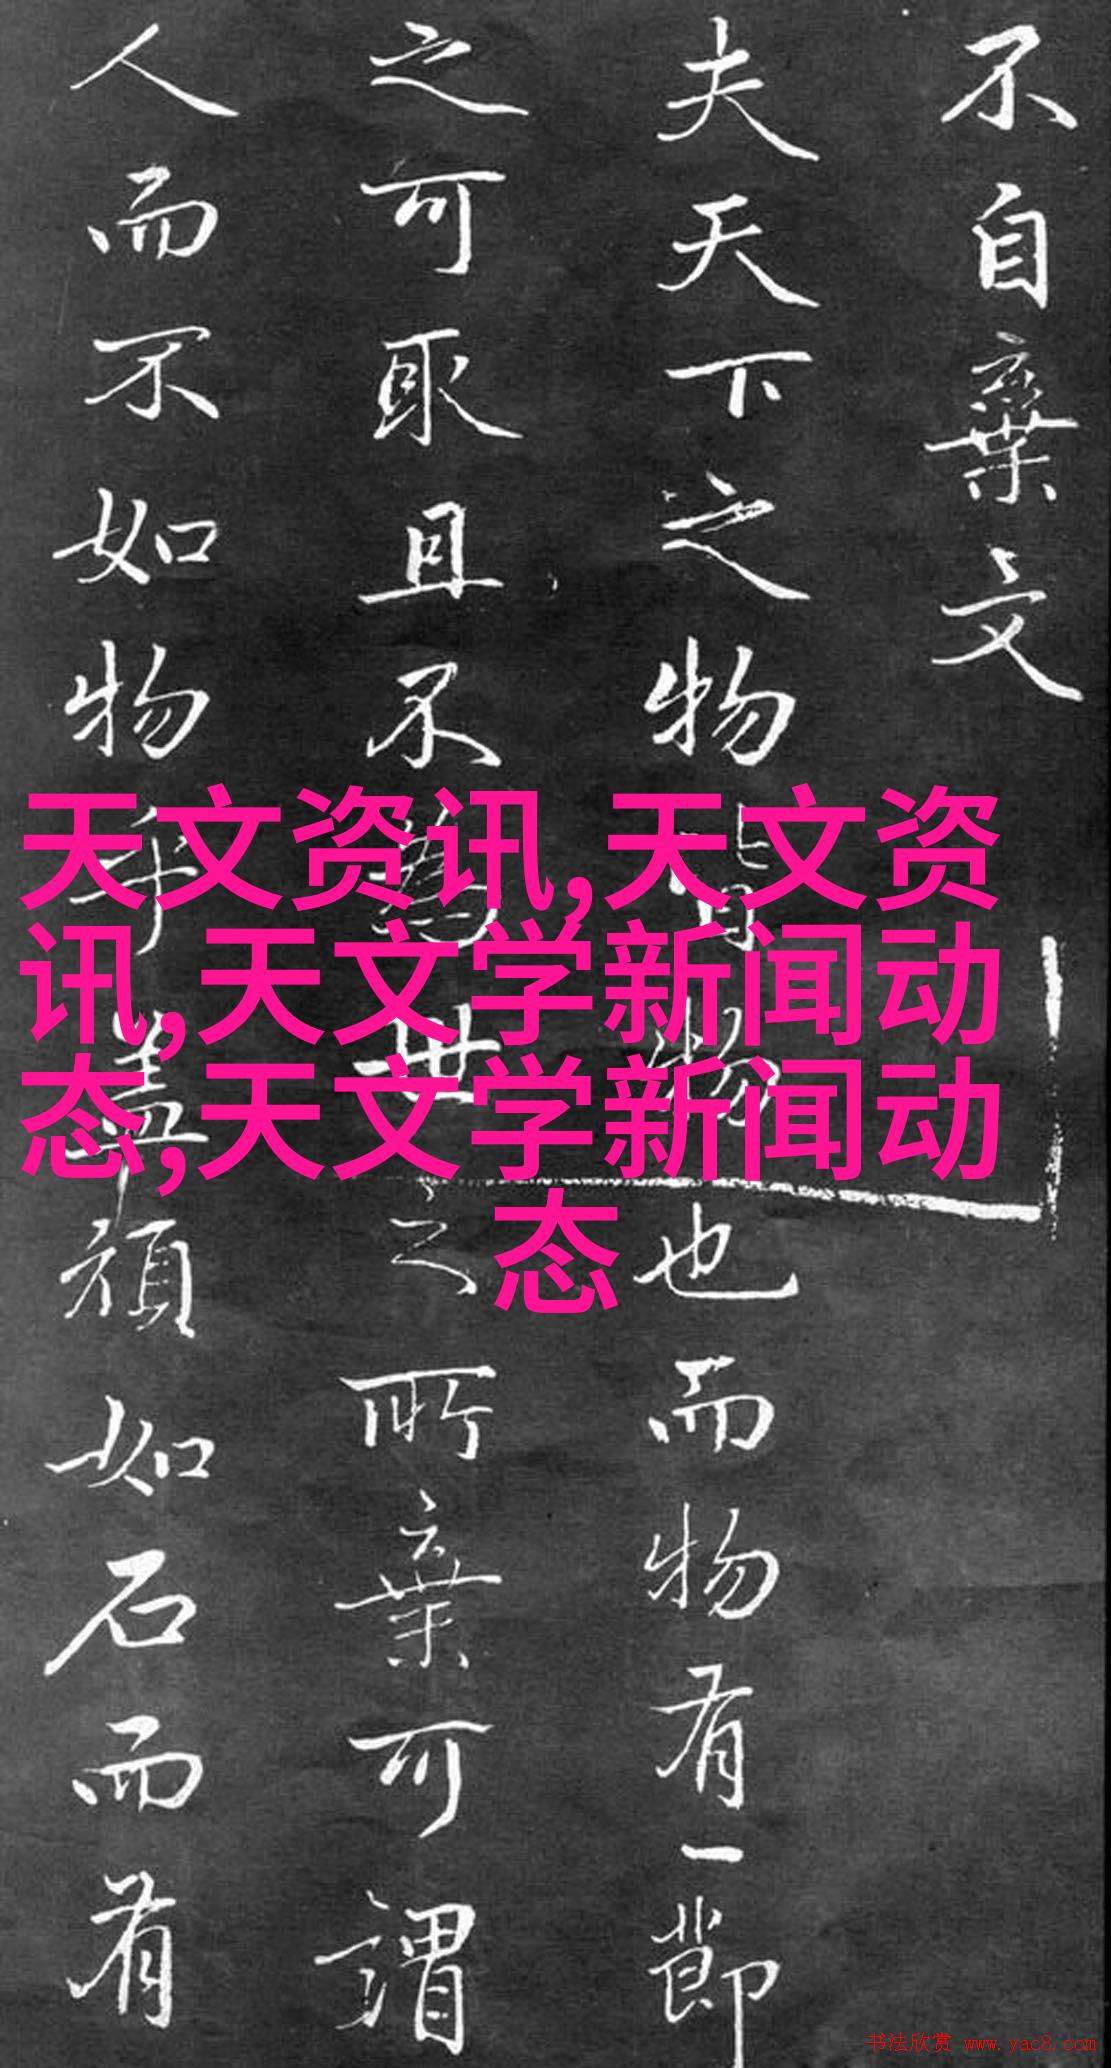 不自棄文
夫天下之物皆物也而物有一節
之可取且不為世之所棄可謂
人而不如物乎蓋頑如石而有
天文资讯,天文资
讯,天文学新闻动
态,天文学新闻动
态
书法欣赏 www.yac8.com